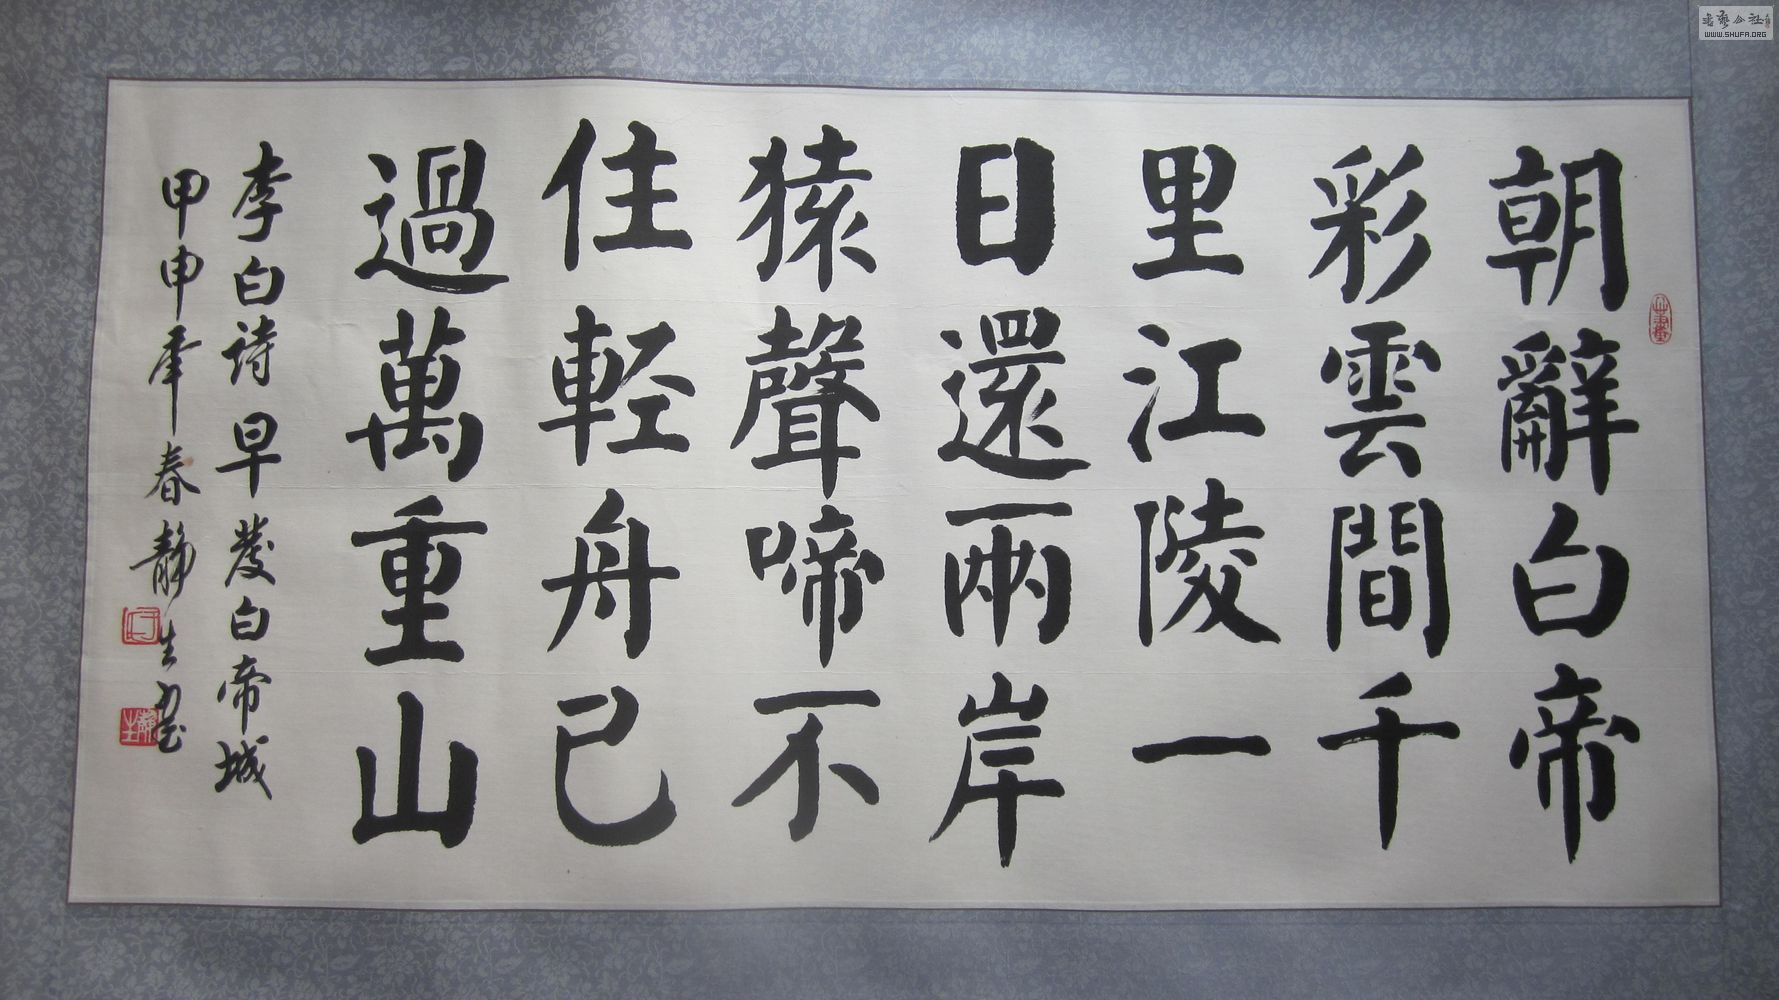 朝辭白帝
彩雲間千
里江陵一
日還兩岸
猿聲啼不
住輕舟已
過萬重山
李白诗早發白帝城
甲申年春靜生书
書藝公社
WWW.SHUFA.ORG